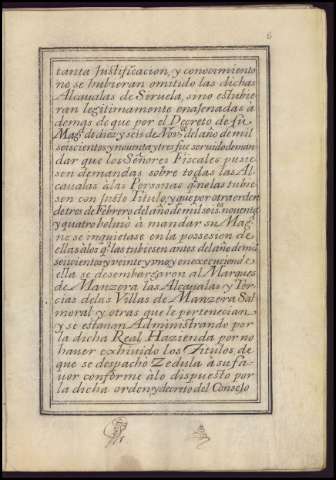 6
tanta Justificacion, y conocimiento
no se hubieran omitido las dichas
Alcavalas de Siruela, sino estubie
ran legitimamente enajenadas à
demas de que por el Decreto de su
Magd. de diez y seis de Nov.e del año de mil
seiscientos y noventa y tres fue servido deman
dar que los Señores Fiscales pusie
sen demandas sobre todas las Al
cavalas à las Personas q.e no las tubie
sen con Justo Titulo, y que por otra orden
de tres de Febrero del año de mil seis.tos noventa
y quatro bolvio à mandar su Mag.d
no se inquietase en la possesion de
ellas à los q.e las tubiesen antes del año de mil
seiscientos y veinte y uno y en execucion de
ella se desembargaron al Marques
de Manzera las Alcavalas y Ter
cias de las Villas de Manzera Sal
moral y otras que le pertenecian
y se estavan Administrando por
la dicha Real Hazienda por no
haver exhivido los Titulos de
que se despacho Zedula à su fa
vor conforme à lo dispuesto por
la dicha orden y decreto del Consejo